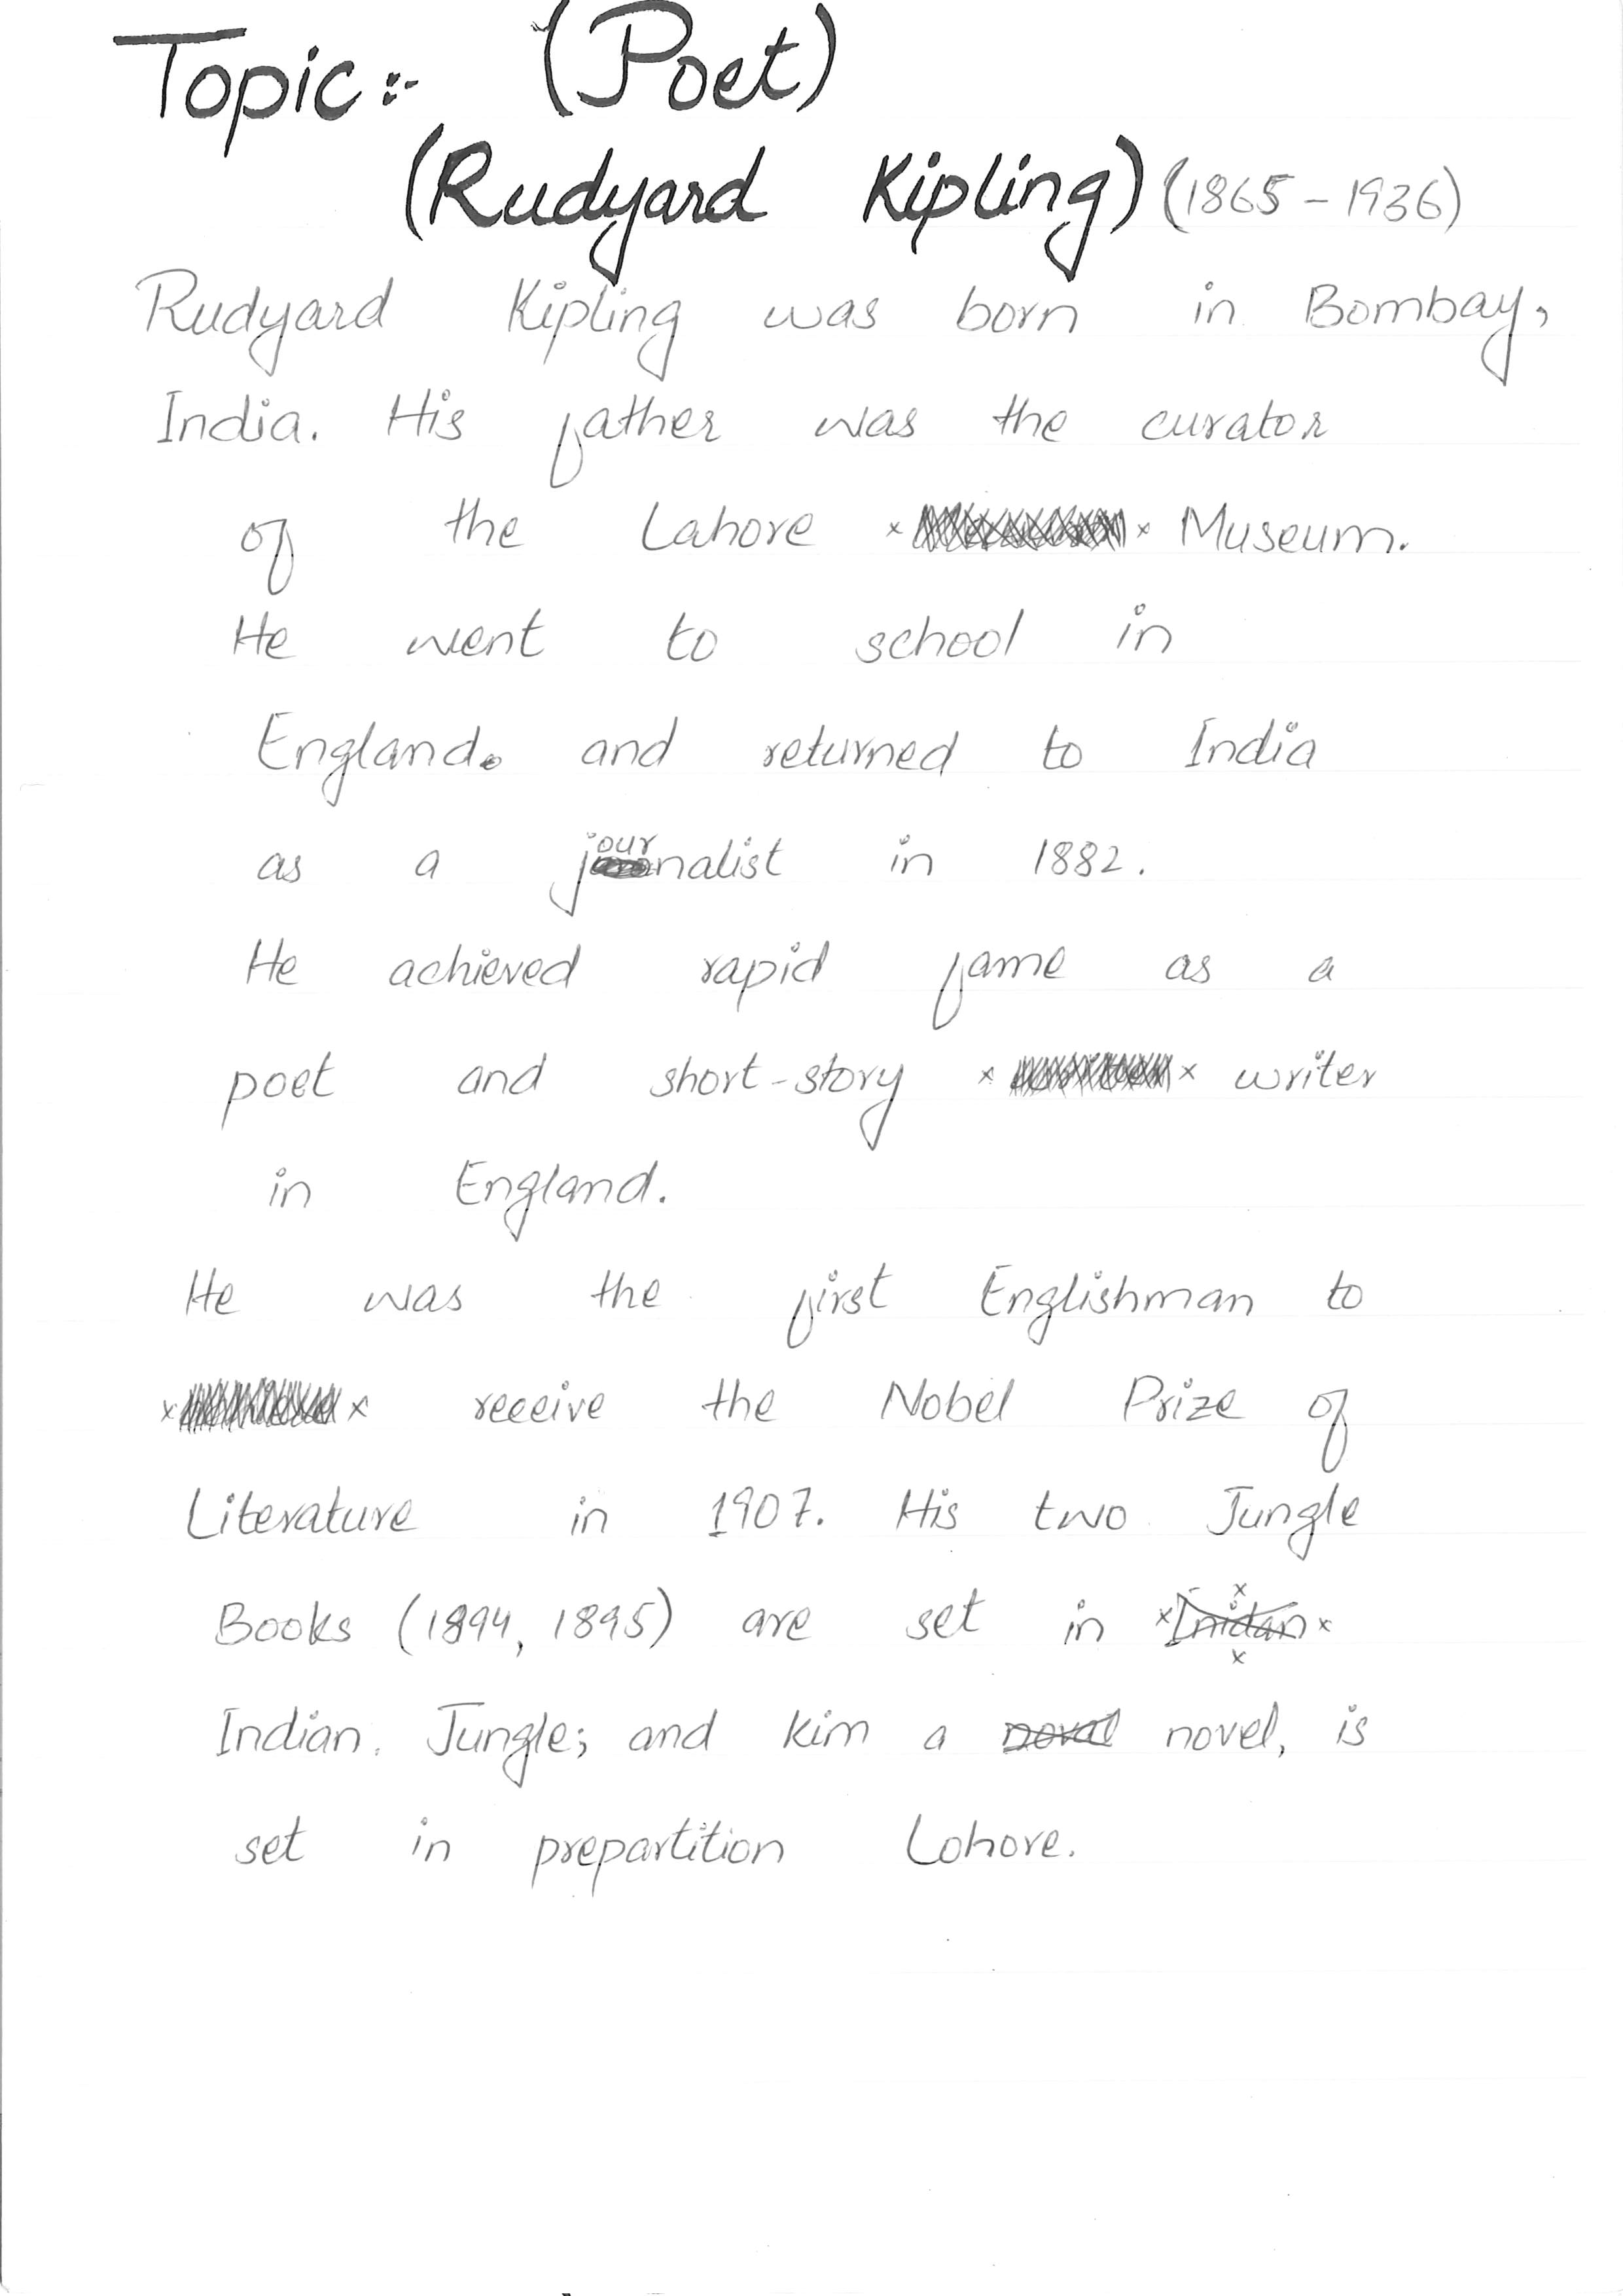 Topic:- (Poet)
(Rudyard Kipling) (1865 - 1936)
Rudyard Kipling was born in Bombay,
India. His father was the curator
of the Lahore Museum.
He went to school in
England. and returned to India
as a journalist in 1882.
He achieved rapid fame as a
poet and short-story writer
in England.
He was the first Englishman to
receive the Nobel Prize of
Literature in 1907. His two Jungle
Books (1894, 1895) are set in Inidan
Indian. Jungle; and kim a noval novel, is
set in prepartition Lohore.